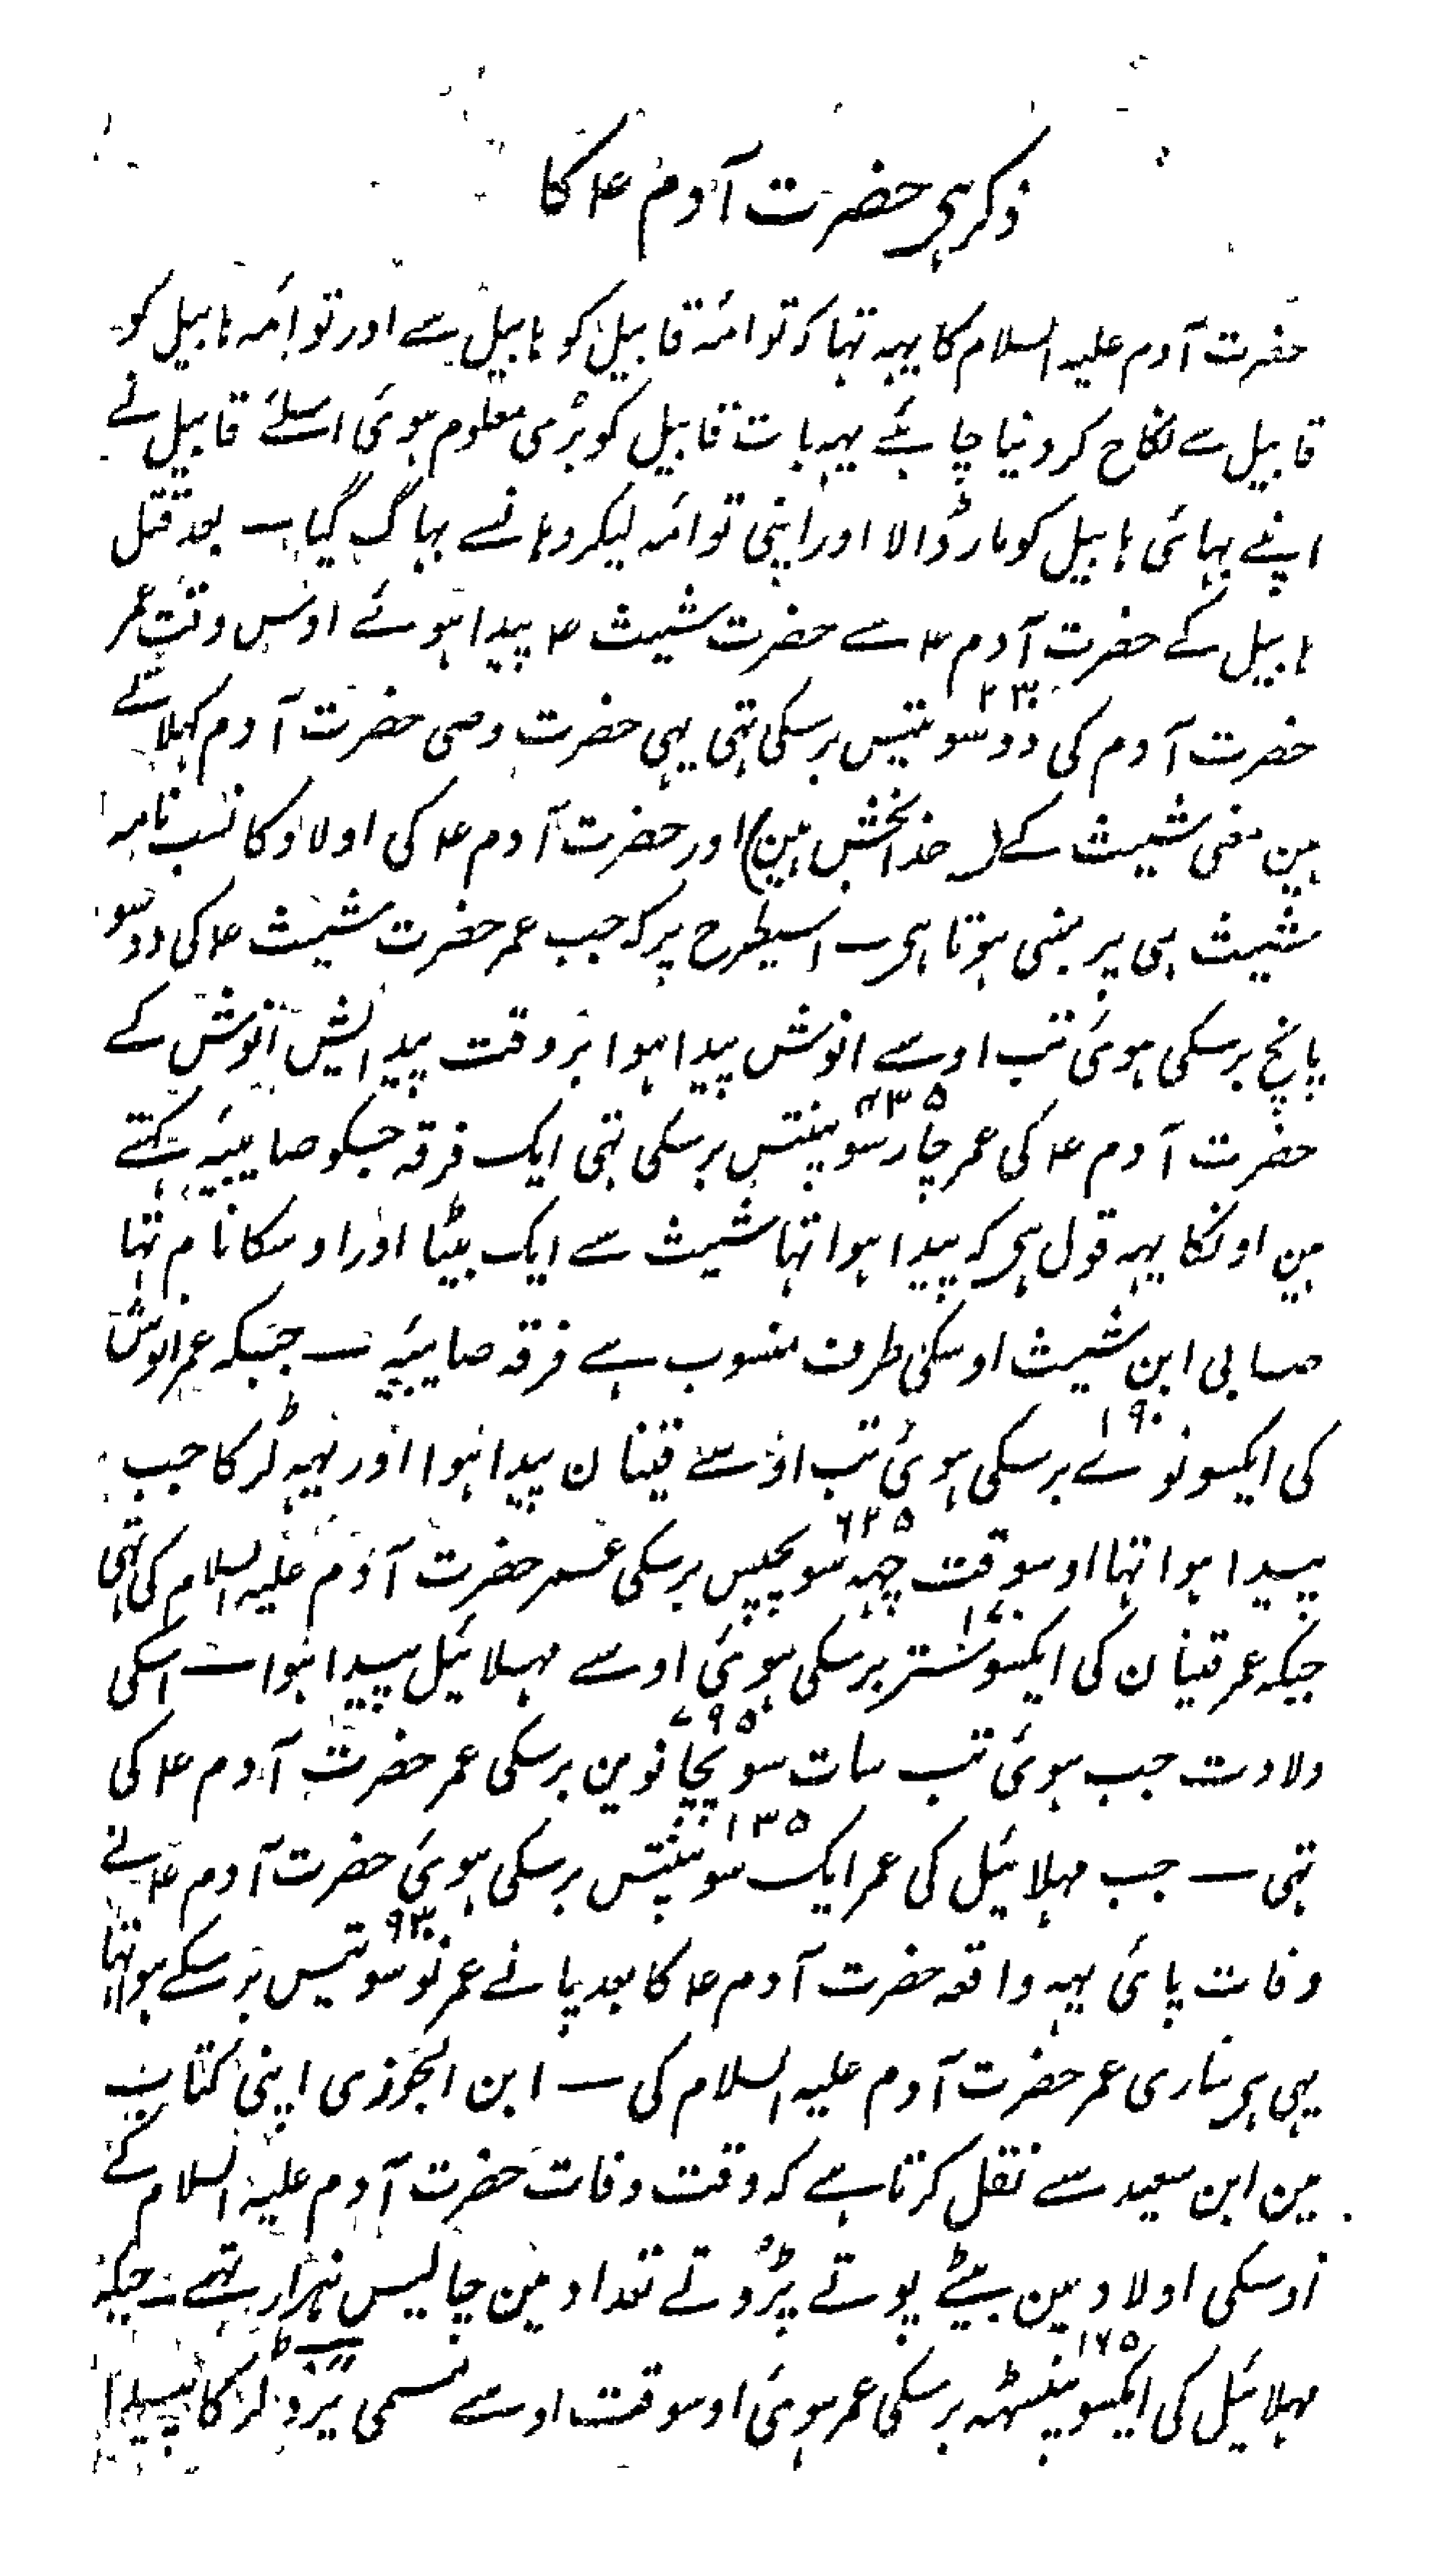 ذکر ہی حضرت آدم ۴ کا
حضرت آدم علیہ السلام کا یہہ تہا کہ توائمہ قابیل کو ہابیل سے اور توائمہ ہابیل کو
قابیل سے نکاح کر دنیا چاہئے یہہ بات قابیل کو بڑی معلوم ہوئی اسلئے قابیل نے
اپنے بہائی ہابیل کو مار ڈالا اور اپنی توائمہ لیکر وہانسے بہاگ گیا ـ بعد قتل
ہابیل کے حضرت آدم ۴ سے حضرت شیث ۴ پیدا ہوئے اوس وقت عمر
حضرت آدم کی دو سو تیس ۲۳۰ برسکی تہی یہی حضرت وصی حضرت آدم کہلاتے
ہین معنی شیث کے (خدا بخش ہین) اور حضرت آدم ۴ کی اولاد کا نسب نامہ
شیث ہی پر مبنی ہوتا ہی ـ اسیطرح پر کہ جب عمر حضرت شیث ۴ کی دو سو
پانچ برسکی ہوئی تب اوسے انوش پیدا ہوا بر وقت پیدایش انوش کے
حضرت آدم ۴ کی عمر چار سو پینتس ۴۳۵ برسکی تہی ایک فرقہ جسکو صابیئہ کہتے
ہین اونکا یہہ قول ہی کہ پیدا ہوا تہا شیث سے ایک بیٹا اور اوسکا نام تہا
صابی ابن شیث اوسکی طرف منسوب ہے فرقہ صابیئہ ـ جبکہ عمر انوش
کی ایکسو نوے ۱۹۰ برسکی ہوئی تب اوسے قینان پیدا ہوا اور یہہ لڑکا جب
پیدا ہوا تہا اوسوقت چہہ سو پچیس ۶۲۵ برسکی عمر حضرت آدم علیہ السلام کی تہی
جبکہ عمر قینان کی ایکسو ستر ۱۷۰ برسکی ہوئی اوسے مہلائیل پیدا ہوا ـ اسکی
ولادت جب ہوئی تب سات سو پچانوین ۷۹۵ برسکی عمر حضرت آدم ۴ کی
تہی ـ جب مہلائیل کی عمر ایک سو پینتس ۱۳۵ برسکی ہوئی حضرت آدم ۴ نے
وفات پائی یہہ واقعہ حضرت آدم ۴ کا بعد پانے عمر نو سو تیس ۹۳۰ برسکے ہوا تہا
یہی ہی ساری عمر حضرت آدم علیہ السلام کی ـ ابن الجوزی اپنی کتاب
مین ابن سعید سے نقل کرتا ہے کہ وقت وفات حضرت آدم علیہ السلام کے
اوسکی اولاد مین بیٹے پوتے پڑوتے تعداد مین چالیس ہزار تہے ـ جبکہ
مہلائیل کی ایکسو پینسٹہہ ۱۶۵ برسکی عمر ہوئی اوسوقت اوسے مسمی یرد لڑکا پیدا